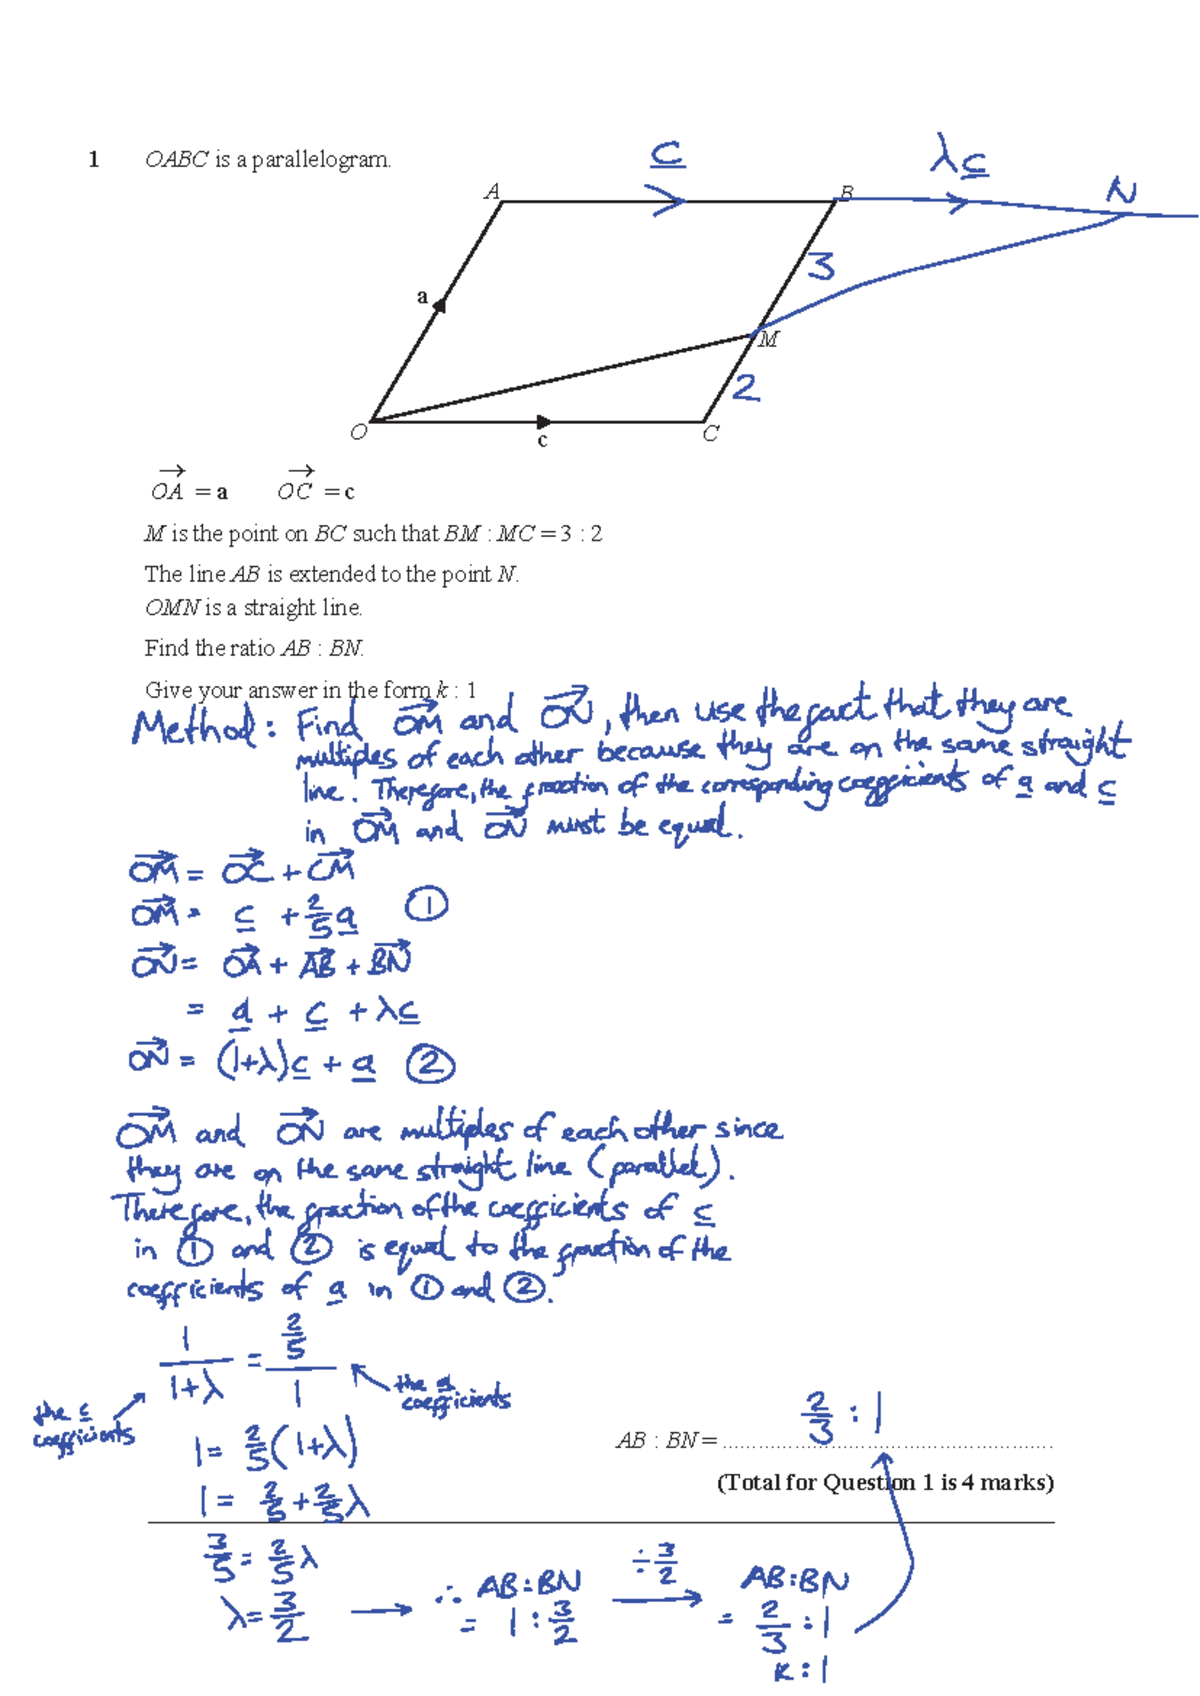 1 OABC is a parallelogram.
c
λc
A
B
N
a
3
M
2
O
c
C
OA→ = a OC→ = c
M is the point on BC such that BM : MC = 3 : 2
The line AB is extended to the point N.
OMN is a straight line.
Find the ratio AB : BN.
Give your answer in the form k : 1
Method: Find OM→ and ON→, then use the fact that they are
multiples of each other because they are on the same straight
line. Therefore, the fraction of the corresponding coefficients of a and c
in OM→ and ON→ must be equal.
OM→ = OC→ + CM→
OM→ = c + 2/5 a ①
ON→ = OA→ + AB→ + BN→
= a + c + λc
ON→ = (1+λ)c + a ②
OM→ and ON→ are multiples of each other since
they are on the same straight line (parallel).
Therefore, the fraction of the coefficients of c
in ① and ② is equal to the fraction of the
coefficients of a in ① and ②.
1/(1+λ) = (2/5)/1
the c coefficients
the a coefficients
1 = 2/5(1+λ)
1 = 2/5 + 2/5 λ
AB : BN = 2/3 : 1
(Total for Question 1 is 4 marks)
3/5 = 2/5 λ
λ = 3/2
∴ AB:BN
= 1 : 3/2
÷ 3/2
AB:BN
= 2/3 : 1
k : 1